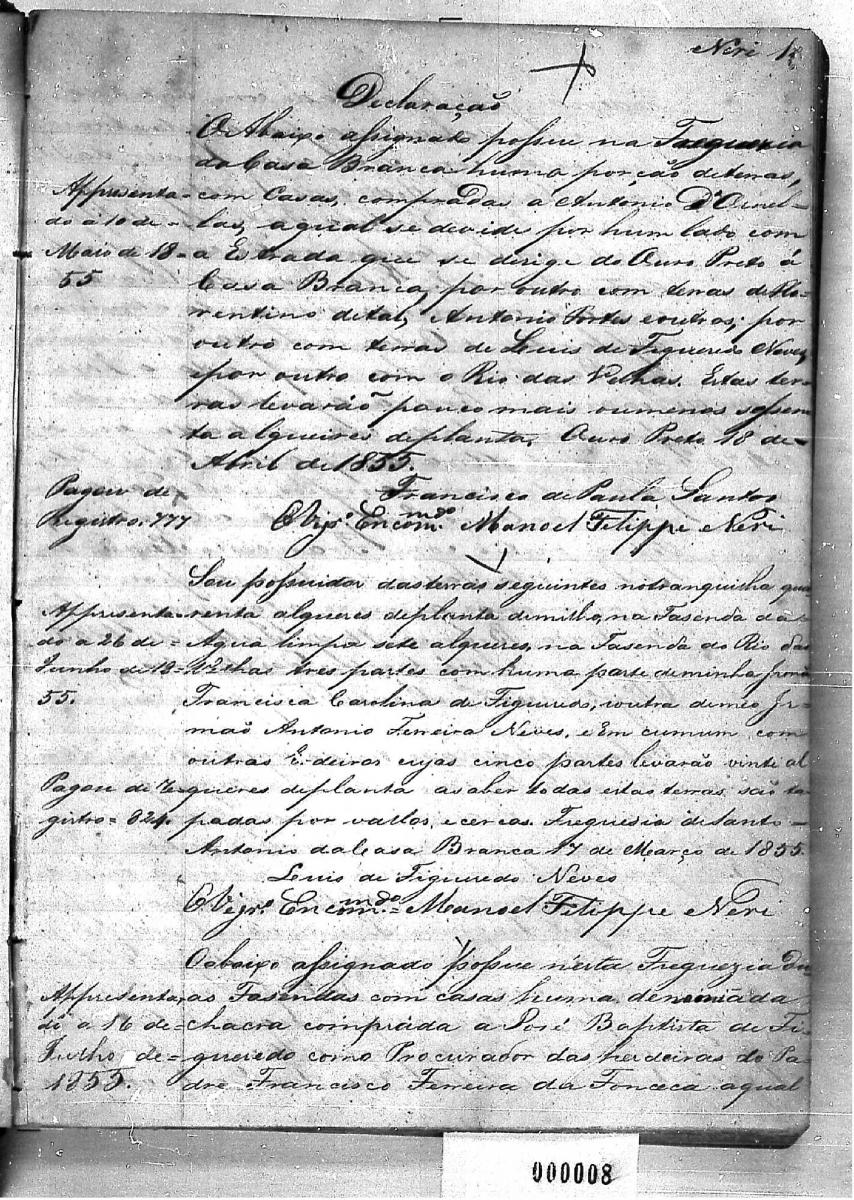 Neri 1
Declaração
O Abaixo assignado possue na Freguezia
da Casa Branca huma porção de terras,
com Casas, compradas a Antonio D'Ornel-
las, a qual se devide por hum lado com
a Estrada que se dirige do Ouro Preto á
Casa Branca, por outro com terras de Flo-
rentino de tal, Antonio Fortes e outros; por
outro com terras de Luis de Figueredo Neves,
e por outro com o Rio das Velhas. Estas ter-
ras levarão pouco mais ou menos sessen-
ta alqueires de planta. Ouro Preto 18 de
Abril de 1855.
Francisco de Paula Santos
O Vigr.º Encom.mdo Manoel Filippe Neri
Appresenta=
do a 10 de =
Maio de 18=
55
Pagou de
Registro. 777
Sou possuidor das terras seguintes no tranquinha qua
renta alqueres de planta de milho, na Fasenda da
Agua limpa sete alqueres, na Fasenda do Rio das
Velhas tres partes com huma parte de minha Jrmã
Francisca Carolina de Figueredo, e outra de meo Jr-
mão Antonio Ferreira Neves, e Em cumum com
outras E.deiros cujas cinco partes levarão vinte al
queres de planta a saber todas estas terras são ta-
padas por vallos, e cercas. Freguesia de Santo=
Antonio da Casa Branca 17 de Março de 1855.
Luis de Figueredo Neves
O Vigr.º Encom.mdo= Manoel Filippe Neri
Appresenta
do a 26 de =
Junho de 18=
55.
Pagou de Re
gistro= 624.
O abaixo assignado possue nesta Freguezia du-
as Fasendas com casas huma denominada
chacra comprada a José Baptista de Fi-
gueredo como Procurador das herdeiras do Pa-
dre Francisco Ferreira da Fonceca aqual
Appresenta,
do a 16 de=
Julho de=
1855.
000008